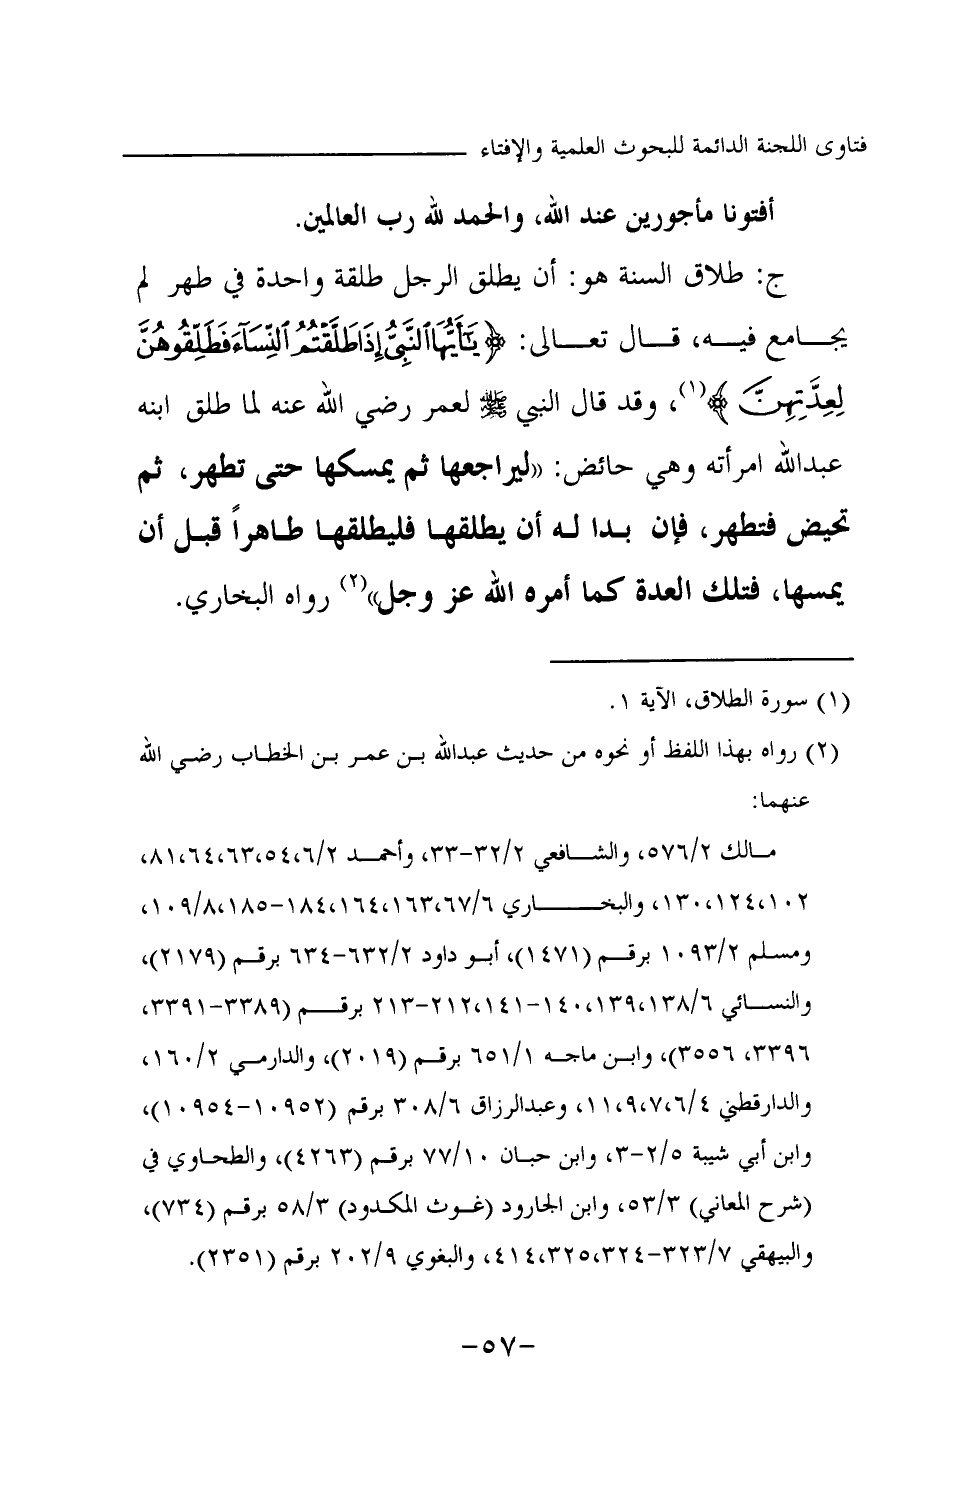 فتاوى اللجنة الدائمة للبحوث العلمية والإفتاء
أفتونا مأجورين عند الله، والحمد لله رب العالمين.
ج: طلاق السنة هو: أن يطلق الرجل طلقة واحدة في طهر لم
يجامع فيه، قال تعالى: ﴿يَٰٓأَيُّهَا ٱلنَّبِىُّ إِذَا طَلَّقْتُمُ ٱلنِّسَآءَ فَطَلِّقُوهُنَّ
لِعِدَّتِهِنَّ﴾(١)، وقد قال النبي ﷺ لعمر رضي الله عنه لما طلق ابنه
عبدالله امرأته وهي حائض: «ليراجعها ثم يمسكها حتى تطهر، ثم
تحيض فتطهر، فإن بدا له أن يطلقها فليطلقها طاهراً قبل أن
يمسها، فتلك العدة كما أمره الله عز وجل»(٢) رواه البخاري.
(١) سورة الطلاق، الآية ١.
(٢) رواه بهذا اللفظ أو نحوه من حديث عبدالله بن عمر بن الخطاب رضي الله
عنهما:
مالك ٥٧٦/٢، والشافعي ٣٢/٢-٣٣، وأحمد ٦/٢،٥٤،٦٣،٦٤،٨١،
١٠٢،١٢٤،١٣٠، والبخاري ٦٧/٦،١٦٣،١٦٤،١٨٤-١٨٥،١٠٩/٨،
ومسلم ١٠٩٣/٢ برقم (١٤٧١)، أبو داود ٦٣٢/٢-٦٣٤ برقم (٢١٧٩)،
والنسائي ١٣٨/٦،١٣٩،١٤٠-١٤١،٢١٢-٢١٣ برقم (٣٣٨٩-٣٣٩١،
٣٣٩٦، ٣٥٥٦)، وابن ماجه ٦٥١/١ برقم (٢٠١٩)، والدارمي ١٦٠/٢،
والدارقطني ٦/٤،٧،٩،١١، وعبدالرزاق ٣٠٨/٦ برقم (١٠٩٥٢-١٠٩٥٤)،
وابن أبي شيبة ٢/٥-٣، وابن حبان ٧٧/١٠ برقم (٤٢٦٣)، والطحاوي في
(شرح المعاني) ٥٣/٣، وابن الجارود (غوث المكدود) ٥٨/٣ برقم (٧٣٤)،
والبيهقي ٣٢٣/٧-٣٢٤،٣٢٥،٤١٤، والبغوي ٢٠٢/٩ برقم (٢٣٥١).
-٥٧-